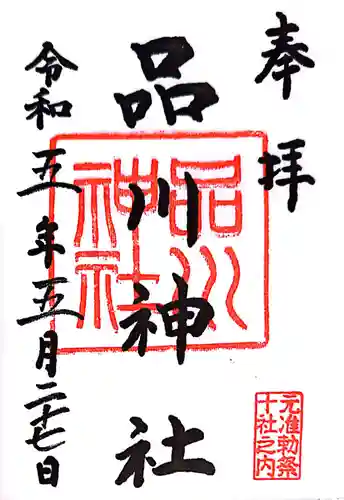 奉拝
品川神社
品川
神社
令和五年五月二十七日
元准勅祭
十社之内